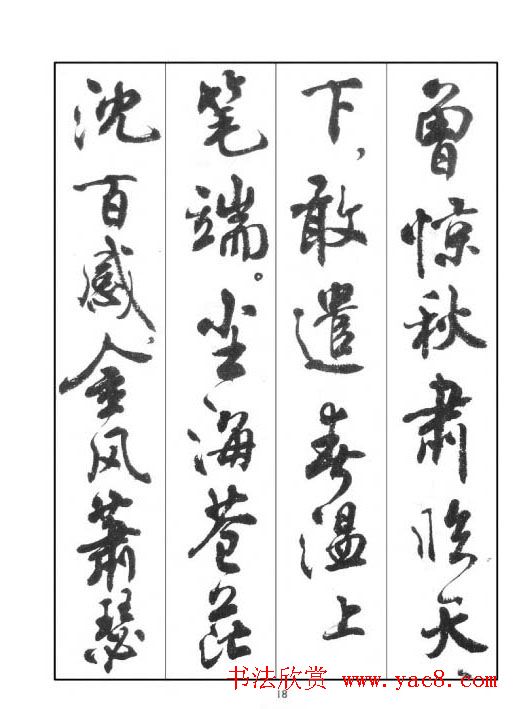 曾惊秋肃临天
下，敢遣春温上
笔端。尘海苍茫
沈百感，金风萧瑟
书法欣赏 www.yac8.com
18